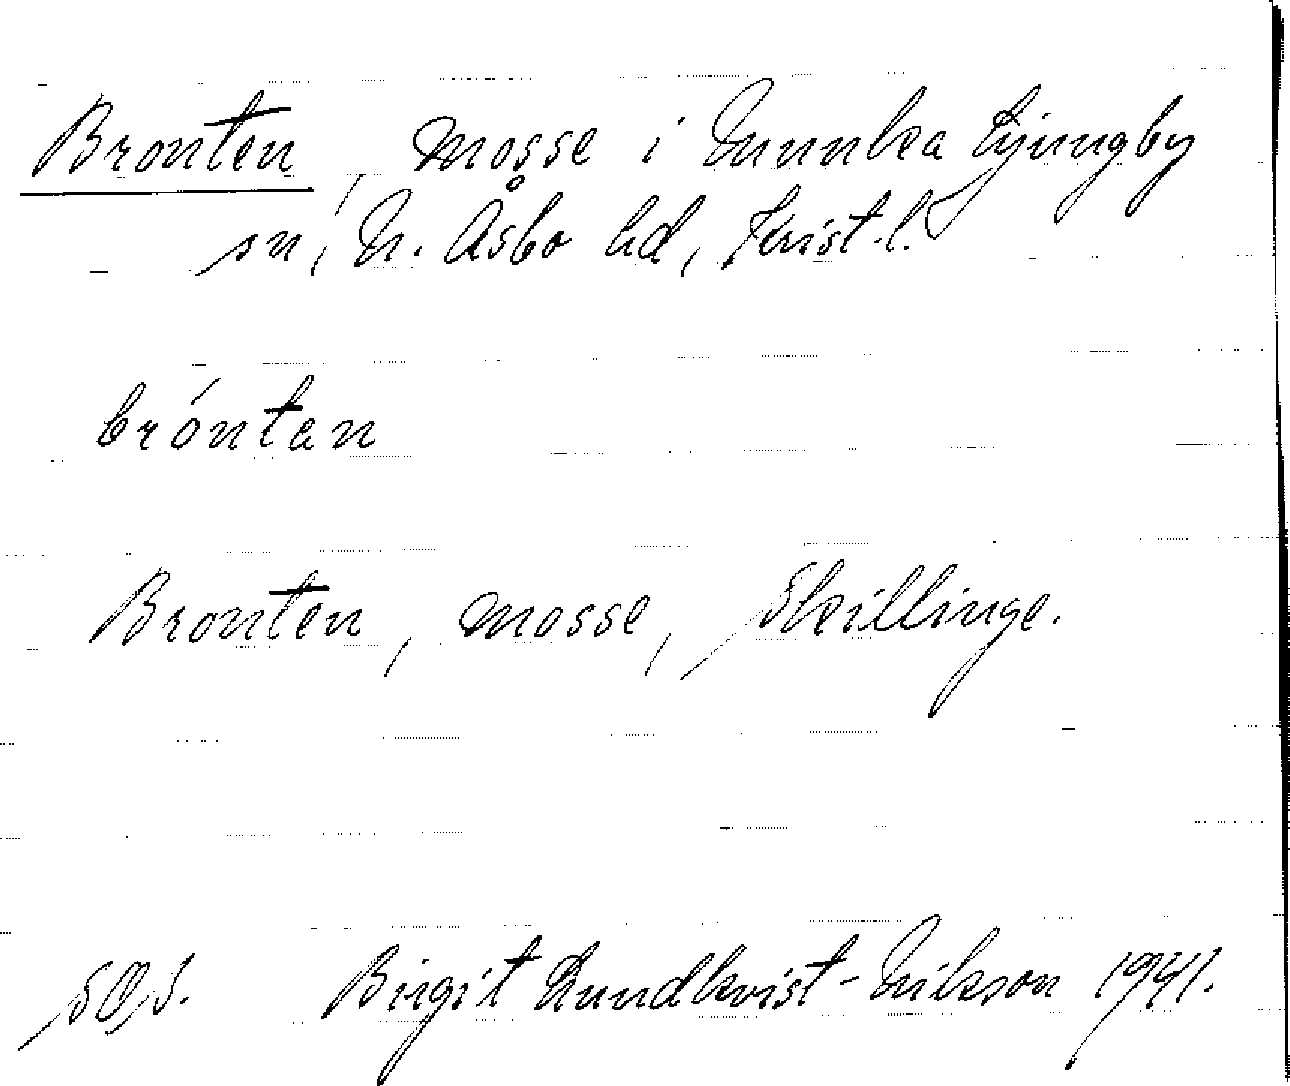 Bronten, mosse i Munka Ljungby
sn, N. Åsbo hd, Krist. l.
bróntan
Bronten, mosse, Skillinge.
Birgit Lundkvist-Nilsson 1941.